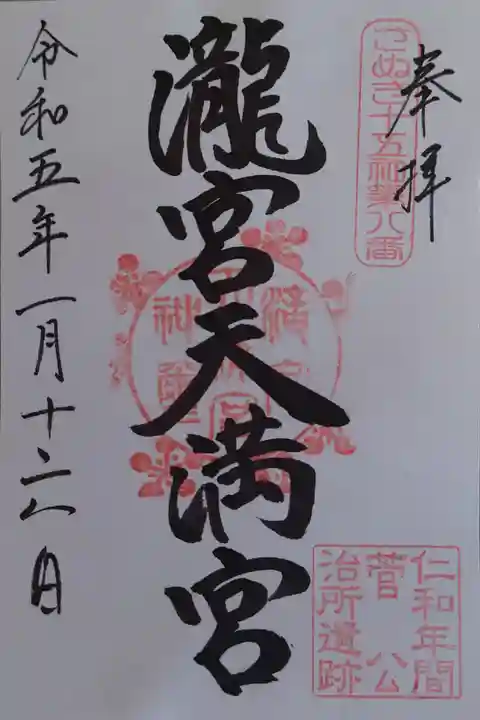 奉拝
さぬき十五社第八番
瀧宮天満宮
仁和年間
菅公
治所遺跡
令和五年一月十二日